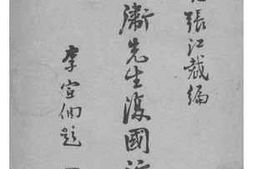 張江裁編
衛先生復國
李宣倜題